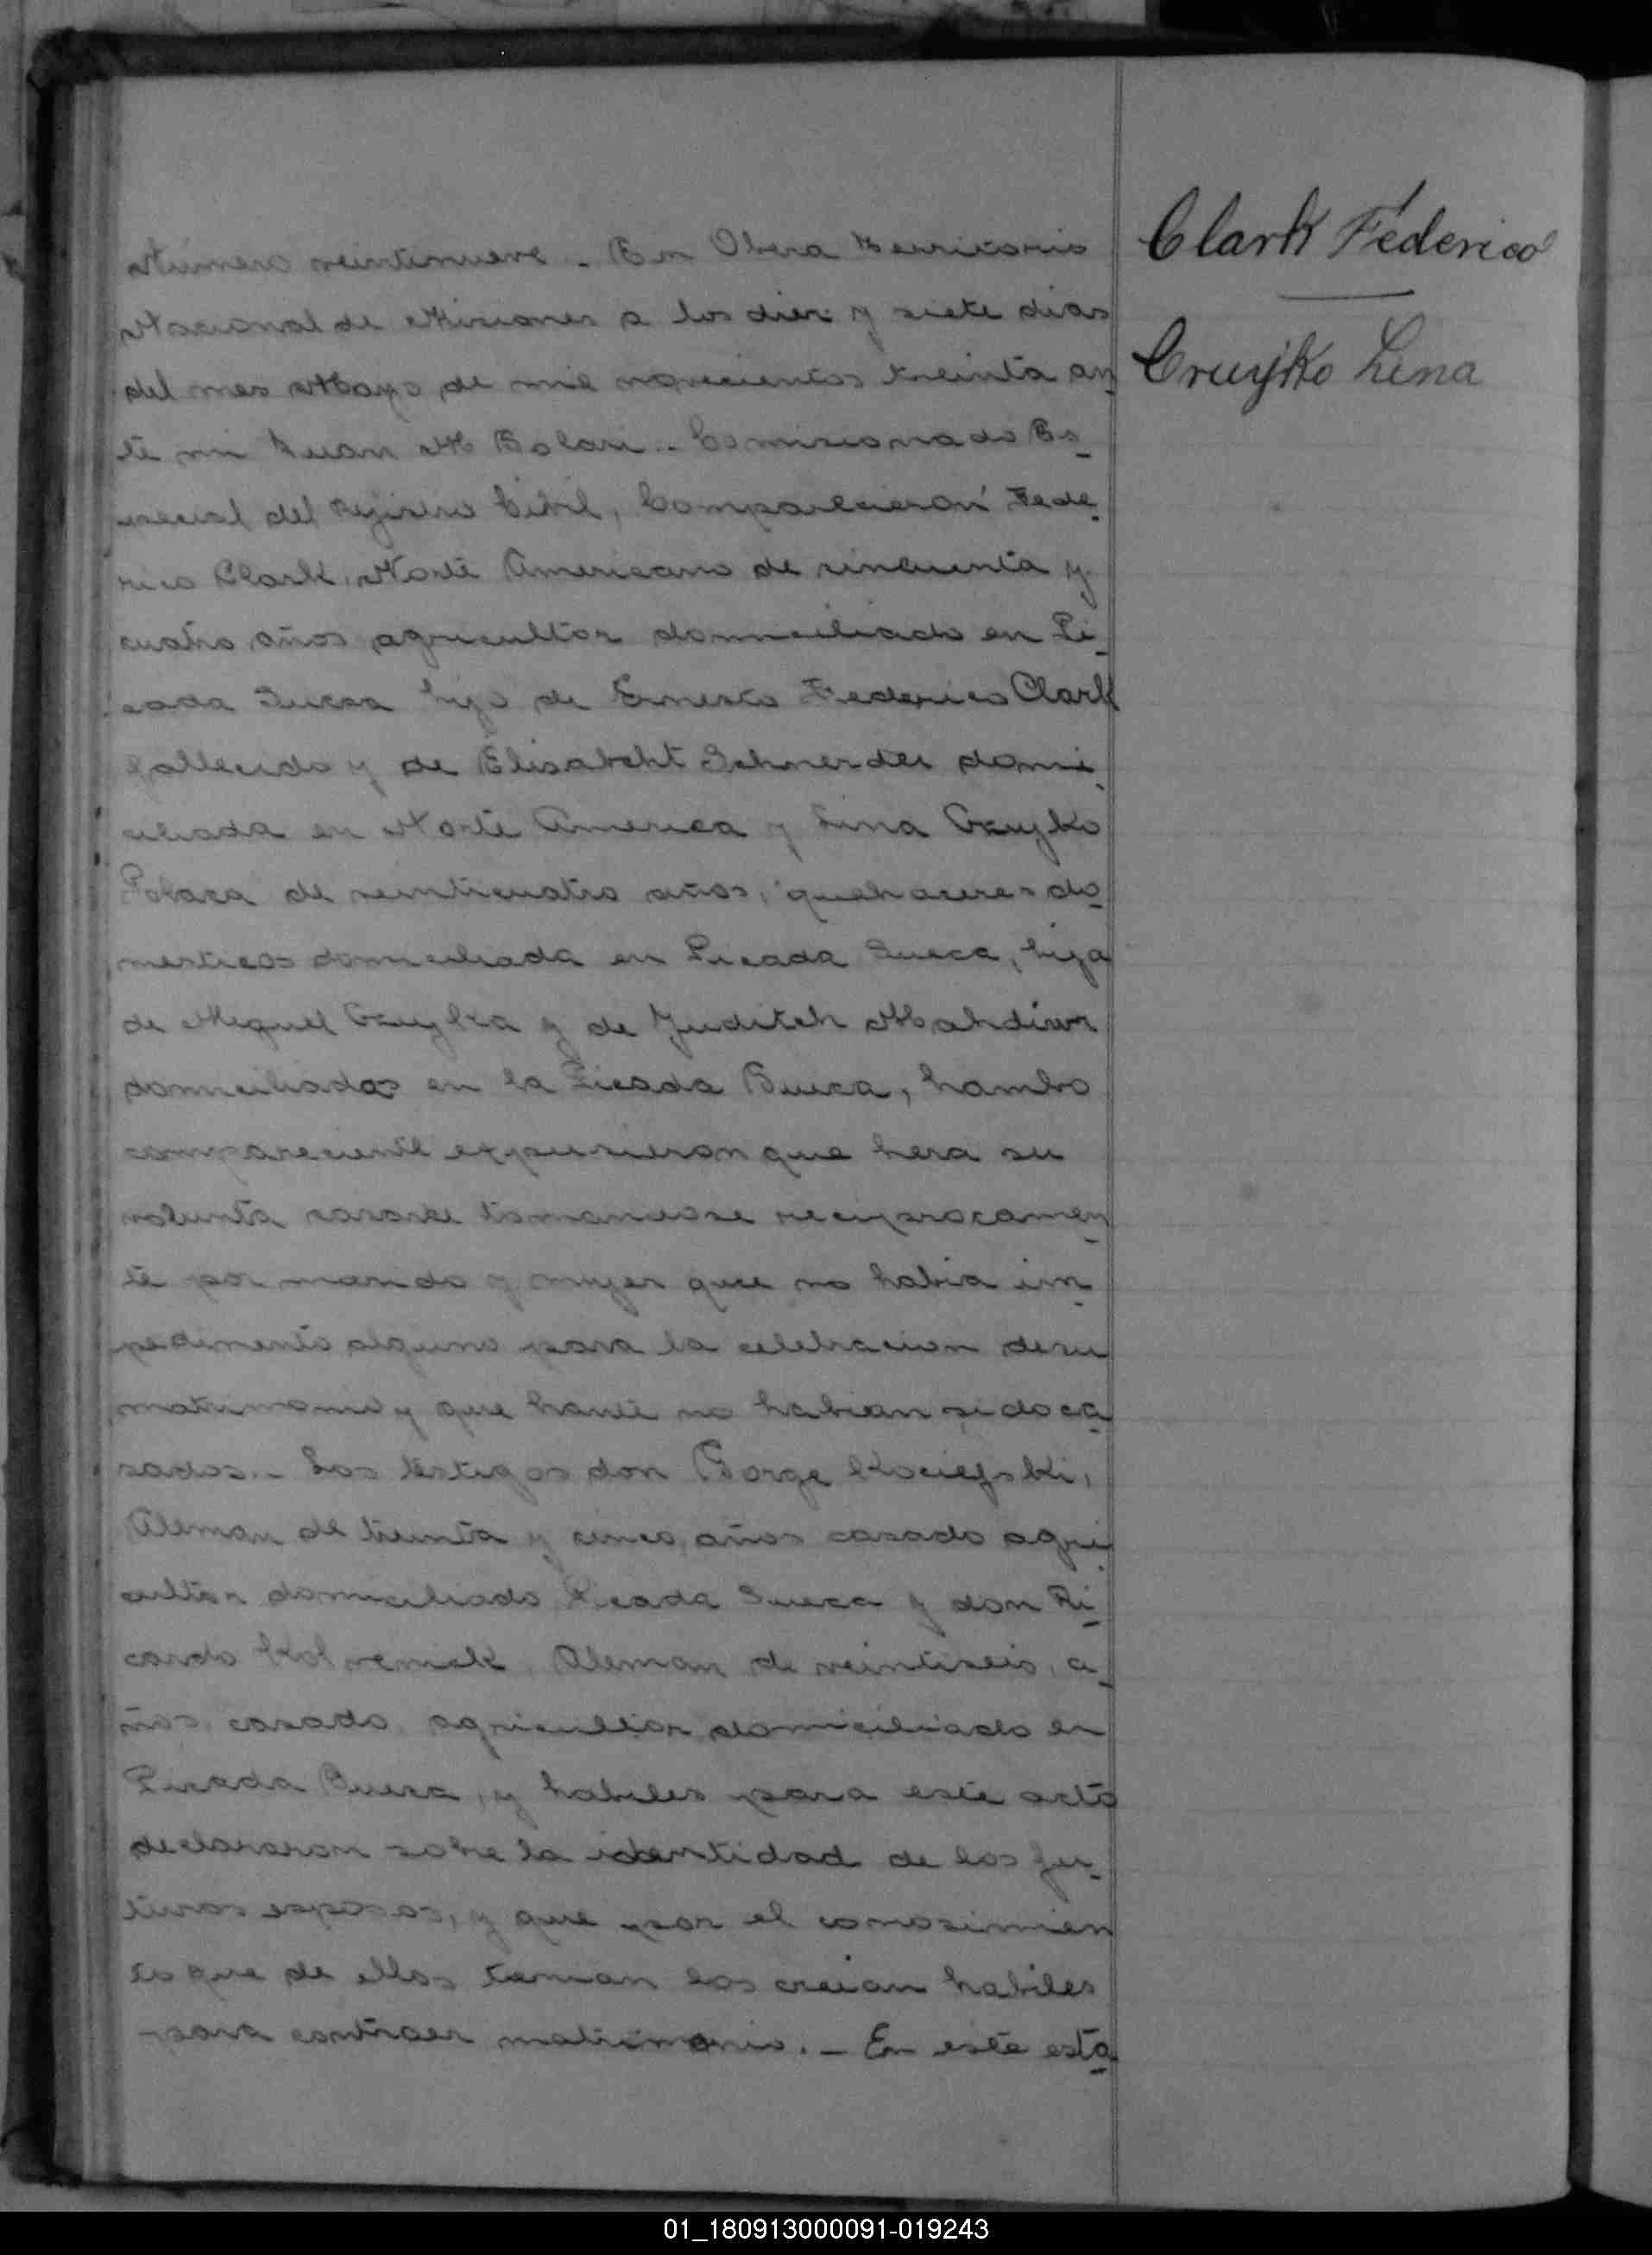 Numero veintinueve. En Obera Territorio
Nacional de Misiones a los diez y siete dias
del mes Mayo de mil novecientos treinta an
te mi Juan M Bolan.. Comisionado Es
pecial del Rejistro Civil, Comparecieron Fede
rico Clark, Norte Americano de cincuenta y
cuatro años agricultor domiciliado en Pi
cada Sueca hijo de Ernesto Federico Clark
fallecido y de Elisabeht Schnerder domi
ciliada en Norte America y Lina Cruyko
Polaca de veinticuatro años, quehaceres do
mesticos domiciliada en Picada Sueca, hija
de Miguel y de Juditeh
domiciliados en la Picada Sueca, hambo
compareciente expusieron que hera su
volunta casarse tomandose reciprocamen
te por marido y mujer que no habia im
pedimento alguno para la celebracion de su
matrimonio y que hante no habian sido ca
sados.. Los testigos don Borge
Aleman de treinta y cinco años casado agri
cultor domiciliado Picada Sueca y don Ri
cardo Aleman de veintiseis, a
ños, casado, agricultor domiciliado en
Picada Sueca, y habiles para este acto
declararon sobre la identidad de los fu
turos esposos, y que por el conosimien
to que de ellos tenian los creian habiles
para contraer matrimonio. - En este esta
Clark Federico
Cruyko Lina
01_180913000091-019243